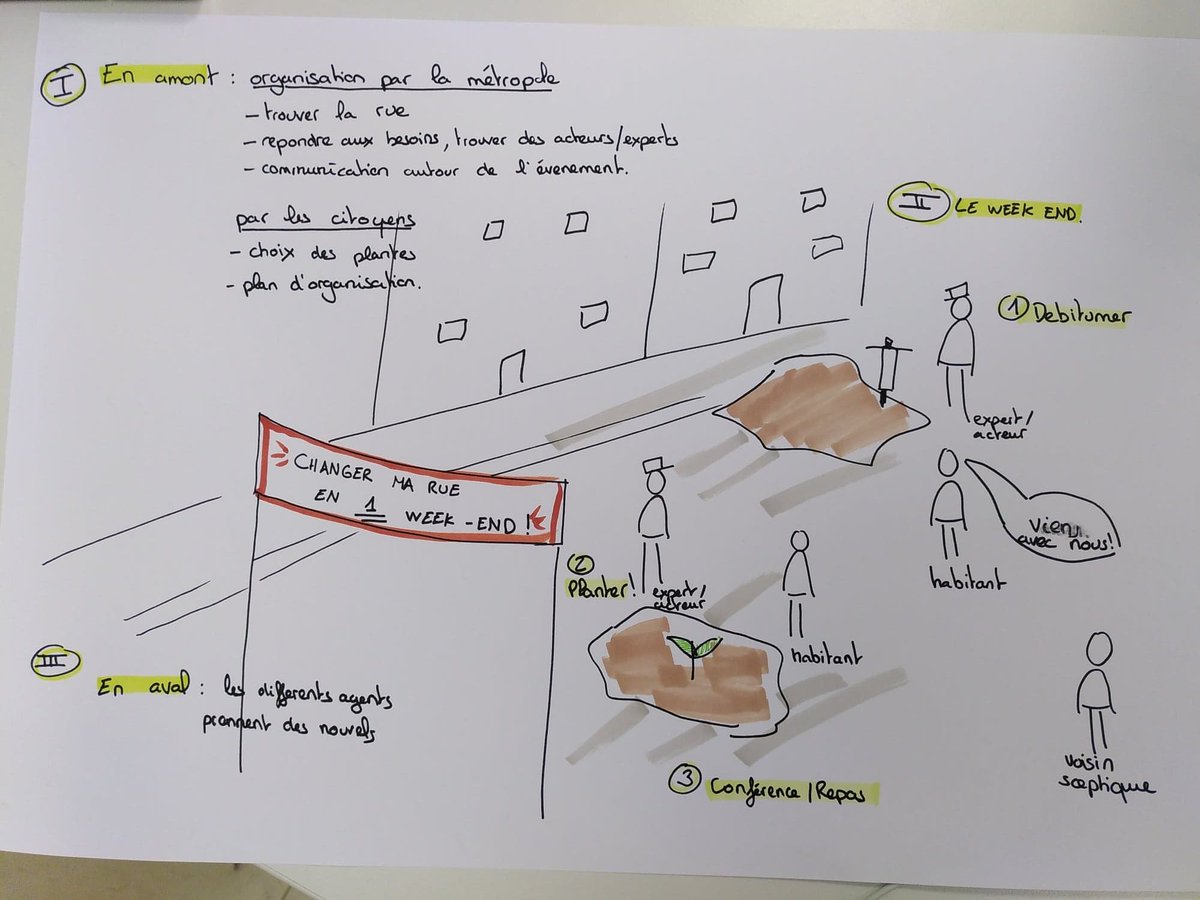 I En amont : organisation par la métropole
- trouver la rue
- repondre aux besoins, trouver des acteurs/experts
- communication autour de l'évenement.
par les citoyens
- choix des plantes
- plan d'organisation.
II LE WEEK END.
1 Debitumer
expert/
acteur
CHANGER MA RUE
EN 1 WEEK-END !
Vien
avec nous!
habitant
2
Planter!
expert/
acteur
habitant
III
En aval : les differents agents
prennent des nouvels
voisin
sceptique
3 Conférence/Repas